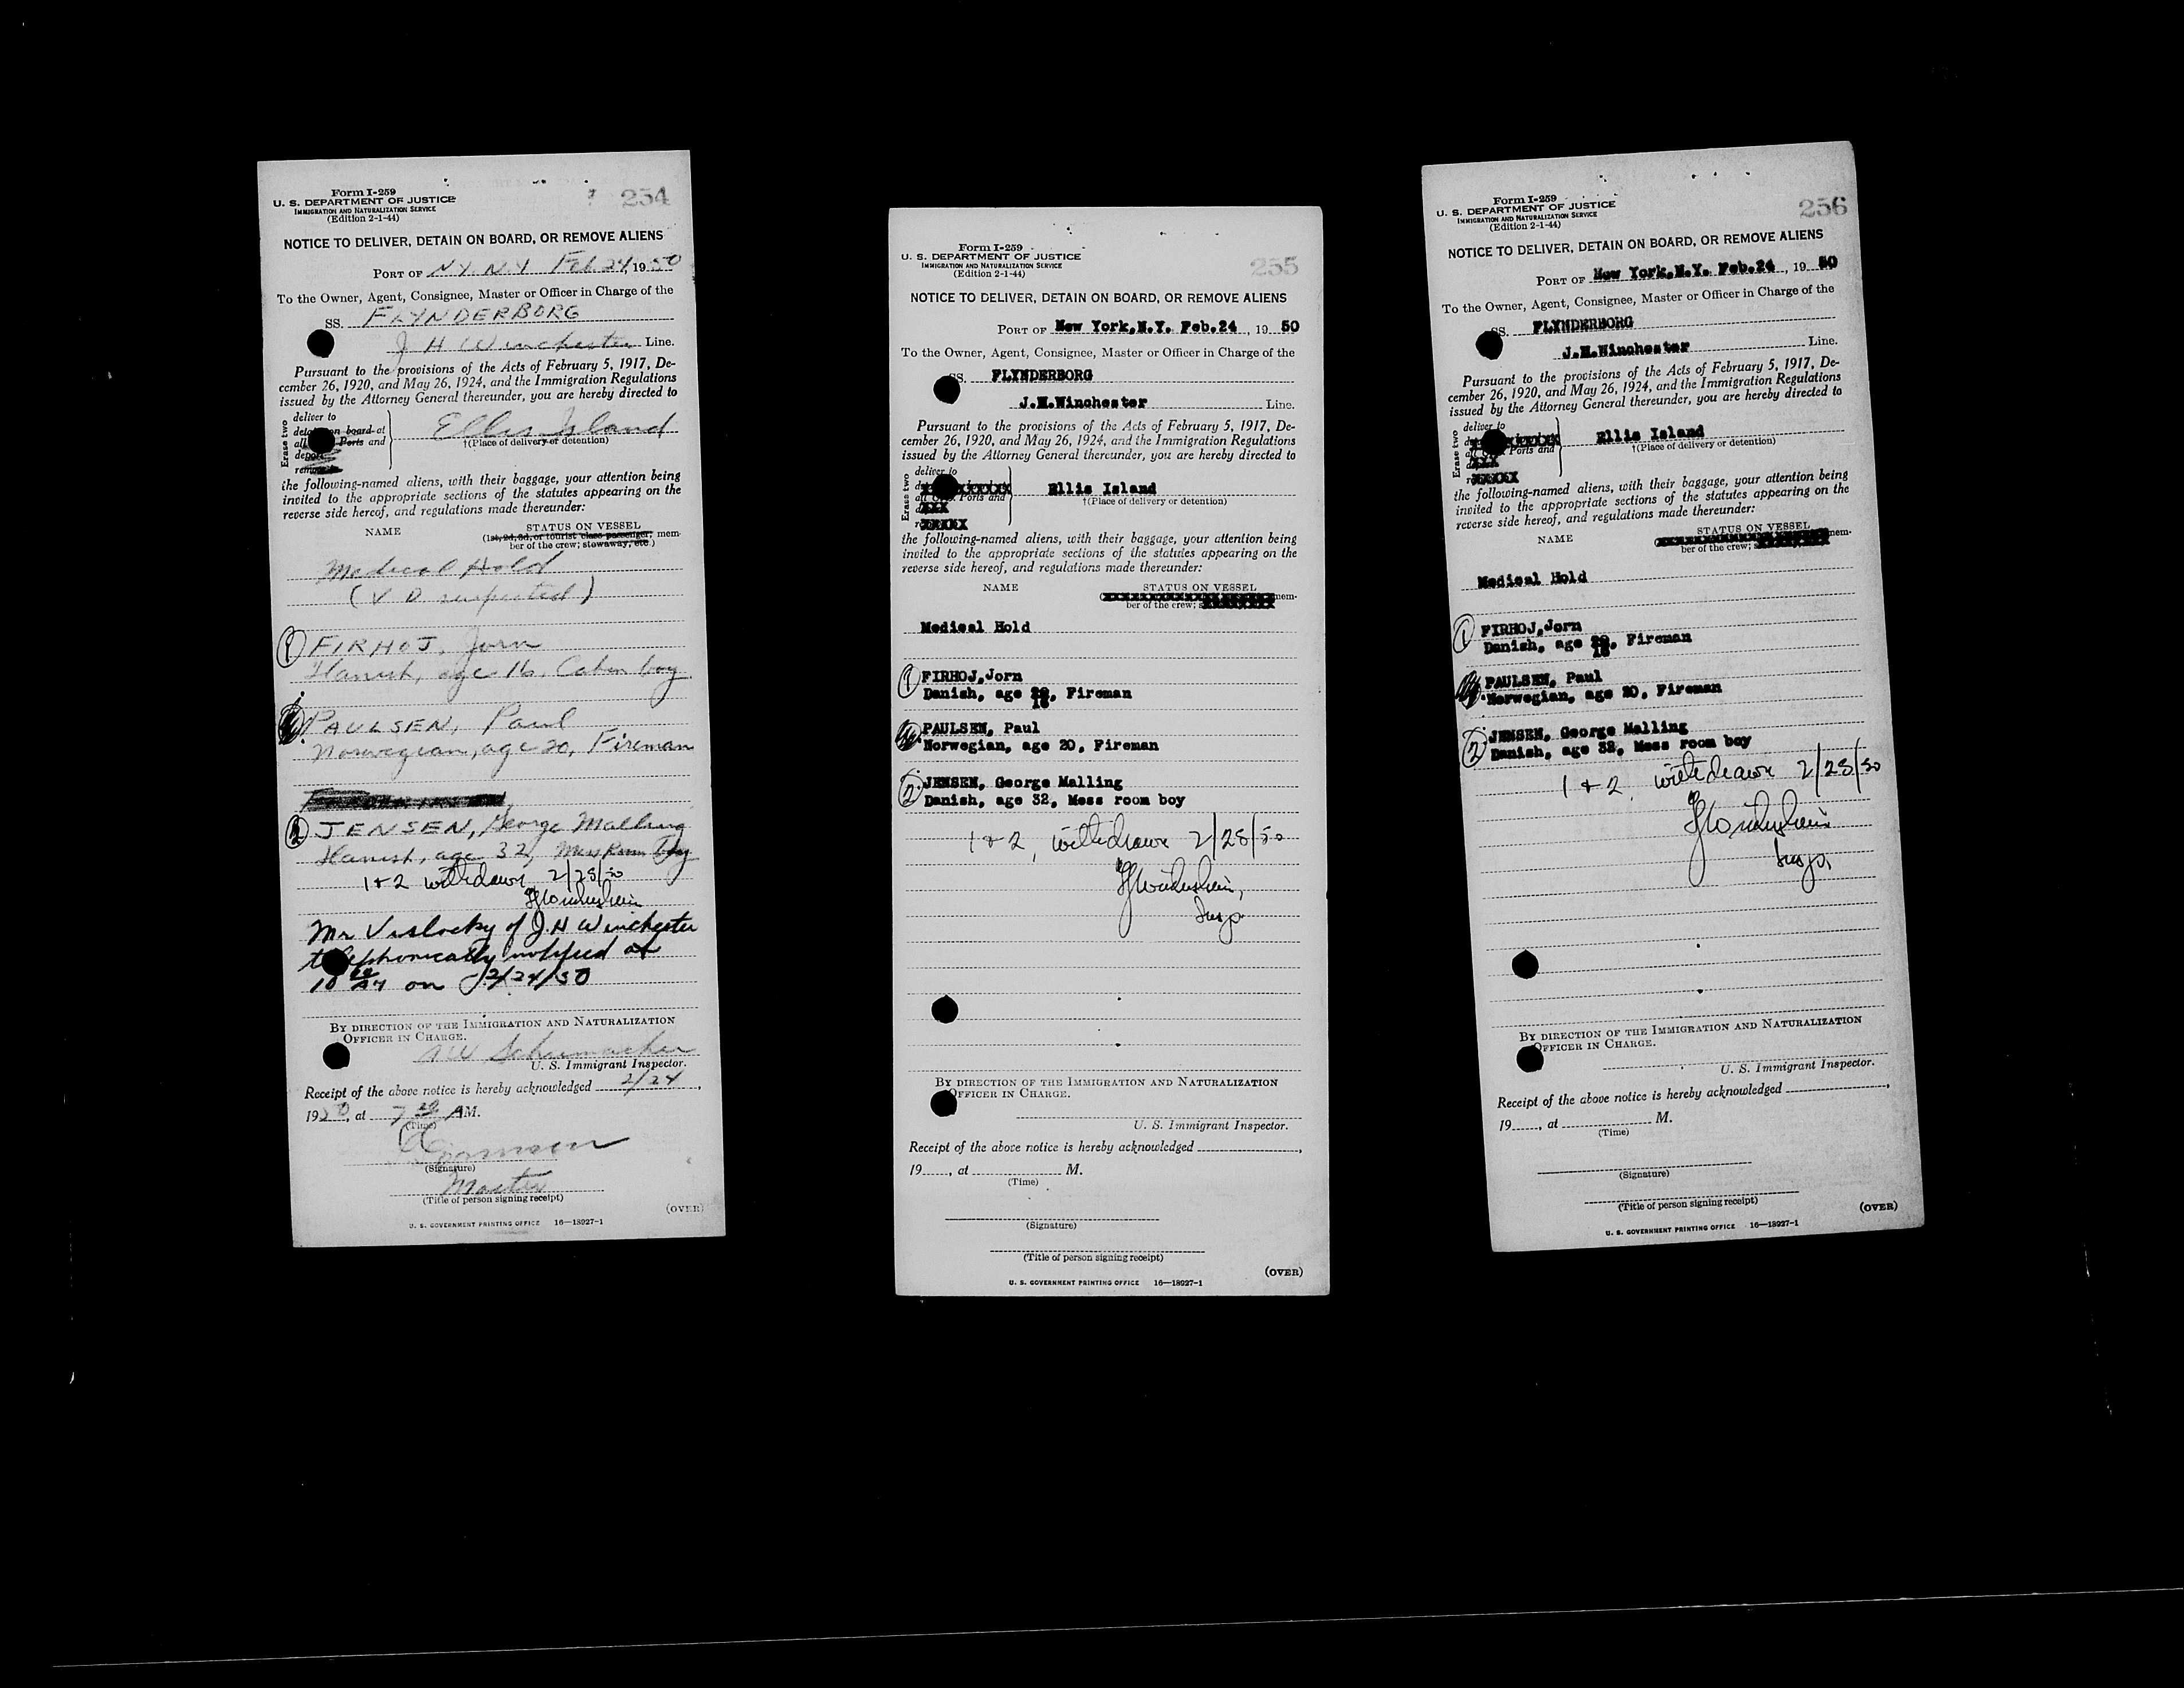 Form I-259
U. S. DEPARTMENT OF JUSTICE
IMMIGRATION AND NATURALIZATION SERVICE
(Edition 2-1-44)
254
NOTICE TO DELIVER, DETAIN ON BOARD, OR REMOVE ALIENS
PORT OF N.Y. N.Y Feb. 24, 1950
To the Owner, Agent, Consignee, Master or Officer in Charge of the
SS. FLYNDERBORG
J H Winchester Line.
Pursuant to the provisions of the Acts of February 5, 1917, De-
cember 26, 1920, and May 26, 1924, and the Immigration Regulations
issued by the Attorney General thereunder, you are hereby directed to
Erase two
deliver to
on board at
Ports and
Ellis Island
†(Place of delivery or detention)
the following-named aliens, with their baggage, your attention being
invited to the appropriate sections of the statutes appearing on the
reverse side hereof, and regulations made thereunder:
NAME STATUS ON VESSEL
(1st, 2d, 3d, or tourist class passenger; mem-
ber of the crew; stowaway, etc.)
Medical Hold
(V D suspected)
1 FIRHOJ, Jorn
Danish, age 16, Cabin boy
PAULSEN, Paul
Norwegian, age 20, Fireman
2 JENSEN, George Malling
Danish, age 32, Mess Room Boy
1 + 2 withdawn 2/28/50
Mr Vislocky of J.H Winchester
telephonically notified at
10 AM on 2/24/50
BY DIRECTION OF THE IMMIGRATION AND NATURALIZATION
OFFICER IN CHARGE.
Schumacher
U. S. Immigrant Inspector.
Receipt of the above notice is hereby acknowledged 2/24,
1950, at 7 AM.
(Time)
(Signature)
Master
(Title of person signing receipt)
(OVER)
U. S. GOVERNMENT PRINTING OFFICE 16—18927-1
Form I-259
U. S. DEPARTMENT OF JUSTICE
IMMIGRATION AND NATURALIZATION SERVICE
(Edition 2-1-44)
255
NOTICE TO DELIVER, DETAIN ON BOARD, OR REMOVE ALIENS
PORT OF New York,N.Y. Feb.24, 1950
To the Owner, Agent, Consignee, Master or Officer in Charge of the
SS. FLYNDERBORG
J.H.Winchester Line.
Pursuant to the provisions of the Acts of February 5, 1917, De-
cember 26, 1920, and May 26, 1924, and the Immigration Regulations
issued by the Attorney General thereunder, you are hereby directed to
Erase two
deliver to
Ports and
Ellis Island
†(Place of delivery or detention)
the following-named aliens, with their baggage, your attention being
invited to the appropriate sections of the statutes appearing on the
reverse side hereof, and regulations made thereunder:
NAME STATUS ON VESSEL
mem-
ber of the crew;
Medical Hold
1 FIRHOJ,Jorn
Danish, age 16, Fireman
PAULSEN, Paul
Norwegian, age 20, Fireman
2 JENSEN, George Malling
Danish, age 32, Mess room boy
1 + 2, withdrawn 2/28/50
Insp.
BY DIRECTION OF THE IMMIGRATION AND NATURALIZATION
OFFICER IN CHARGE.
U. S. Immigrant Inspector.
Receipt of the above notice is hereby acknowledged
19, at M.
(Time)
(Signature)
(Title of person signing receipt)
(OVER)
U. S. GOVERNMENT PRINTING OFFICE 16—18927-1
Form I-259
U. S. DEPARTMENT OF JUSTICE
IMMIGRATION AND NATURALIZATION SERVICE
(Edition 2-1-44)
256
NOTICE TO DELIVER, DETAIN ON BOARD, OR REMOVE ALIENS
PORT OF New York,N.Y. Feb.24, 1950
To the Owner, Agent, Consignee, Master or Officer in Charge of the
SS. FLYNDERBORG
J.H.Winchester Line.
Pursuant to the provisions of the Acts of February 5, 1917, De-
cember 26, 1920, and May 26, 1924, and the Immigration Regulations
issued by the Attorney General thereunder, you are hereby directed to
Erase two
deliver to
Ports and
Ellis Island
†(Place of delivery or detention)
the following-named aliens, with their baggage, your attention being
invited to the appropriate sections of the statutes appearing on the
reverse side hereof, and regulations made thereunder:
NAME STATUS ON VESSEL
mem-
ber of the crew;
Medical Hold
1 FIRHOJ,Jorn
Danish, age 16, Fireman
PAULSEN, Paul
Norwegian, age 20, Fireman
2 JENSEN, George Malling
Danish, age 32, Mess room boy
1 + 2, withdrawn 2/28/50
Insp.
BY DIRECTION OF THE IMMIGRATION AND NATURALIZATION
OFFICER IN CHARGE.
U. S. Immigrant Inspector.
Receipt of the above notice is hereby acknowledged
19, at M.
(Time)
(Signature)
(Title of person signing receipt)
(OVER)
U. S. GOVERNMENT PRINTING OFFICE 16—18927-1